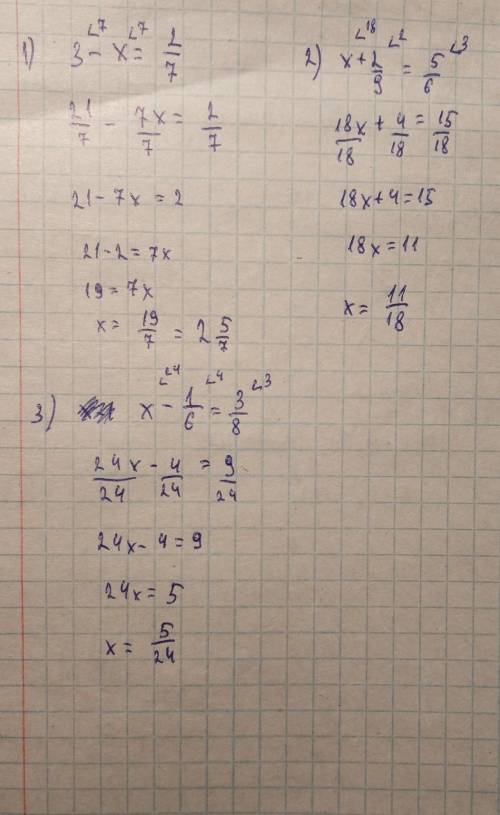 1) 3 - x = 2/7
∠7 ∠7
21/7 - 7x/7 = 2/7
21 - 7x = 2
21 - 2 = 7x
19 = 7x
x = 19/7 = 2 5/7
2) x + 2/9 = 5/6
∠18 ∠2 ∠3
18x/18 + 4/18 = 15/18
18x + 4 = 15
18x = 11
x = 11/18
3) x - 1/6 = 3/8
∠24 ∠4 ∠3
24x/24 - 4/24 = 9/24
24x - 4 = 9
24x = 5
x = 5/24